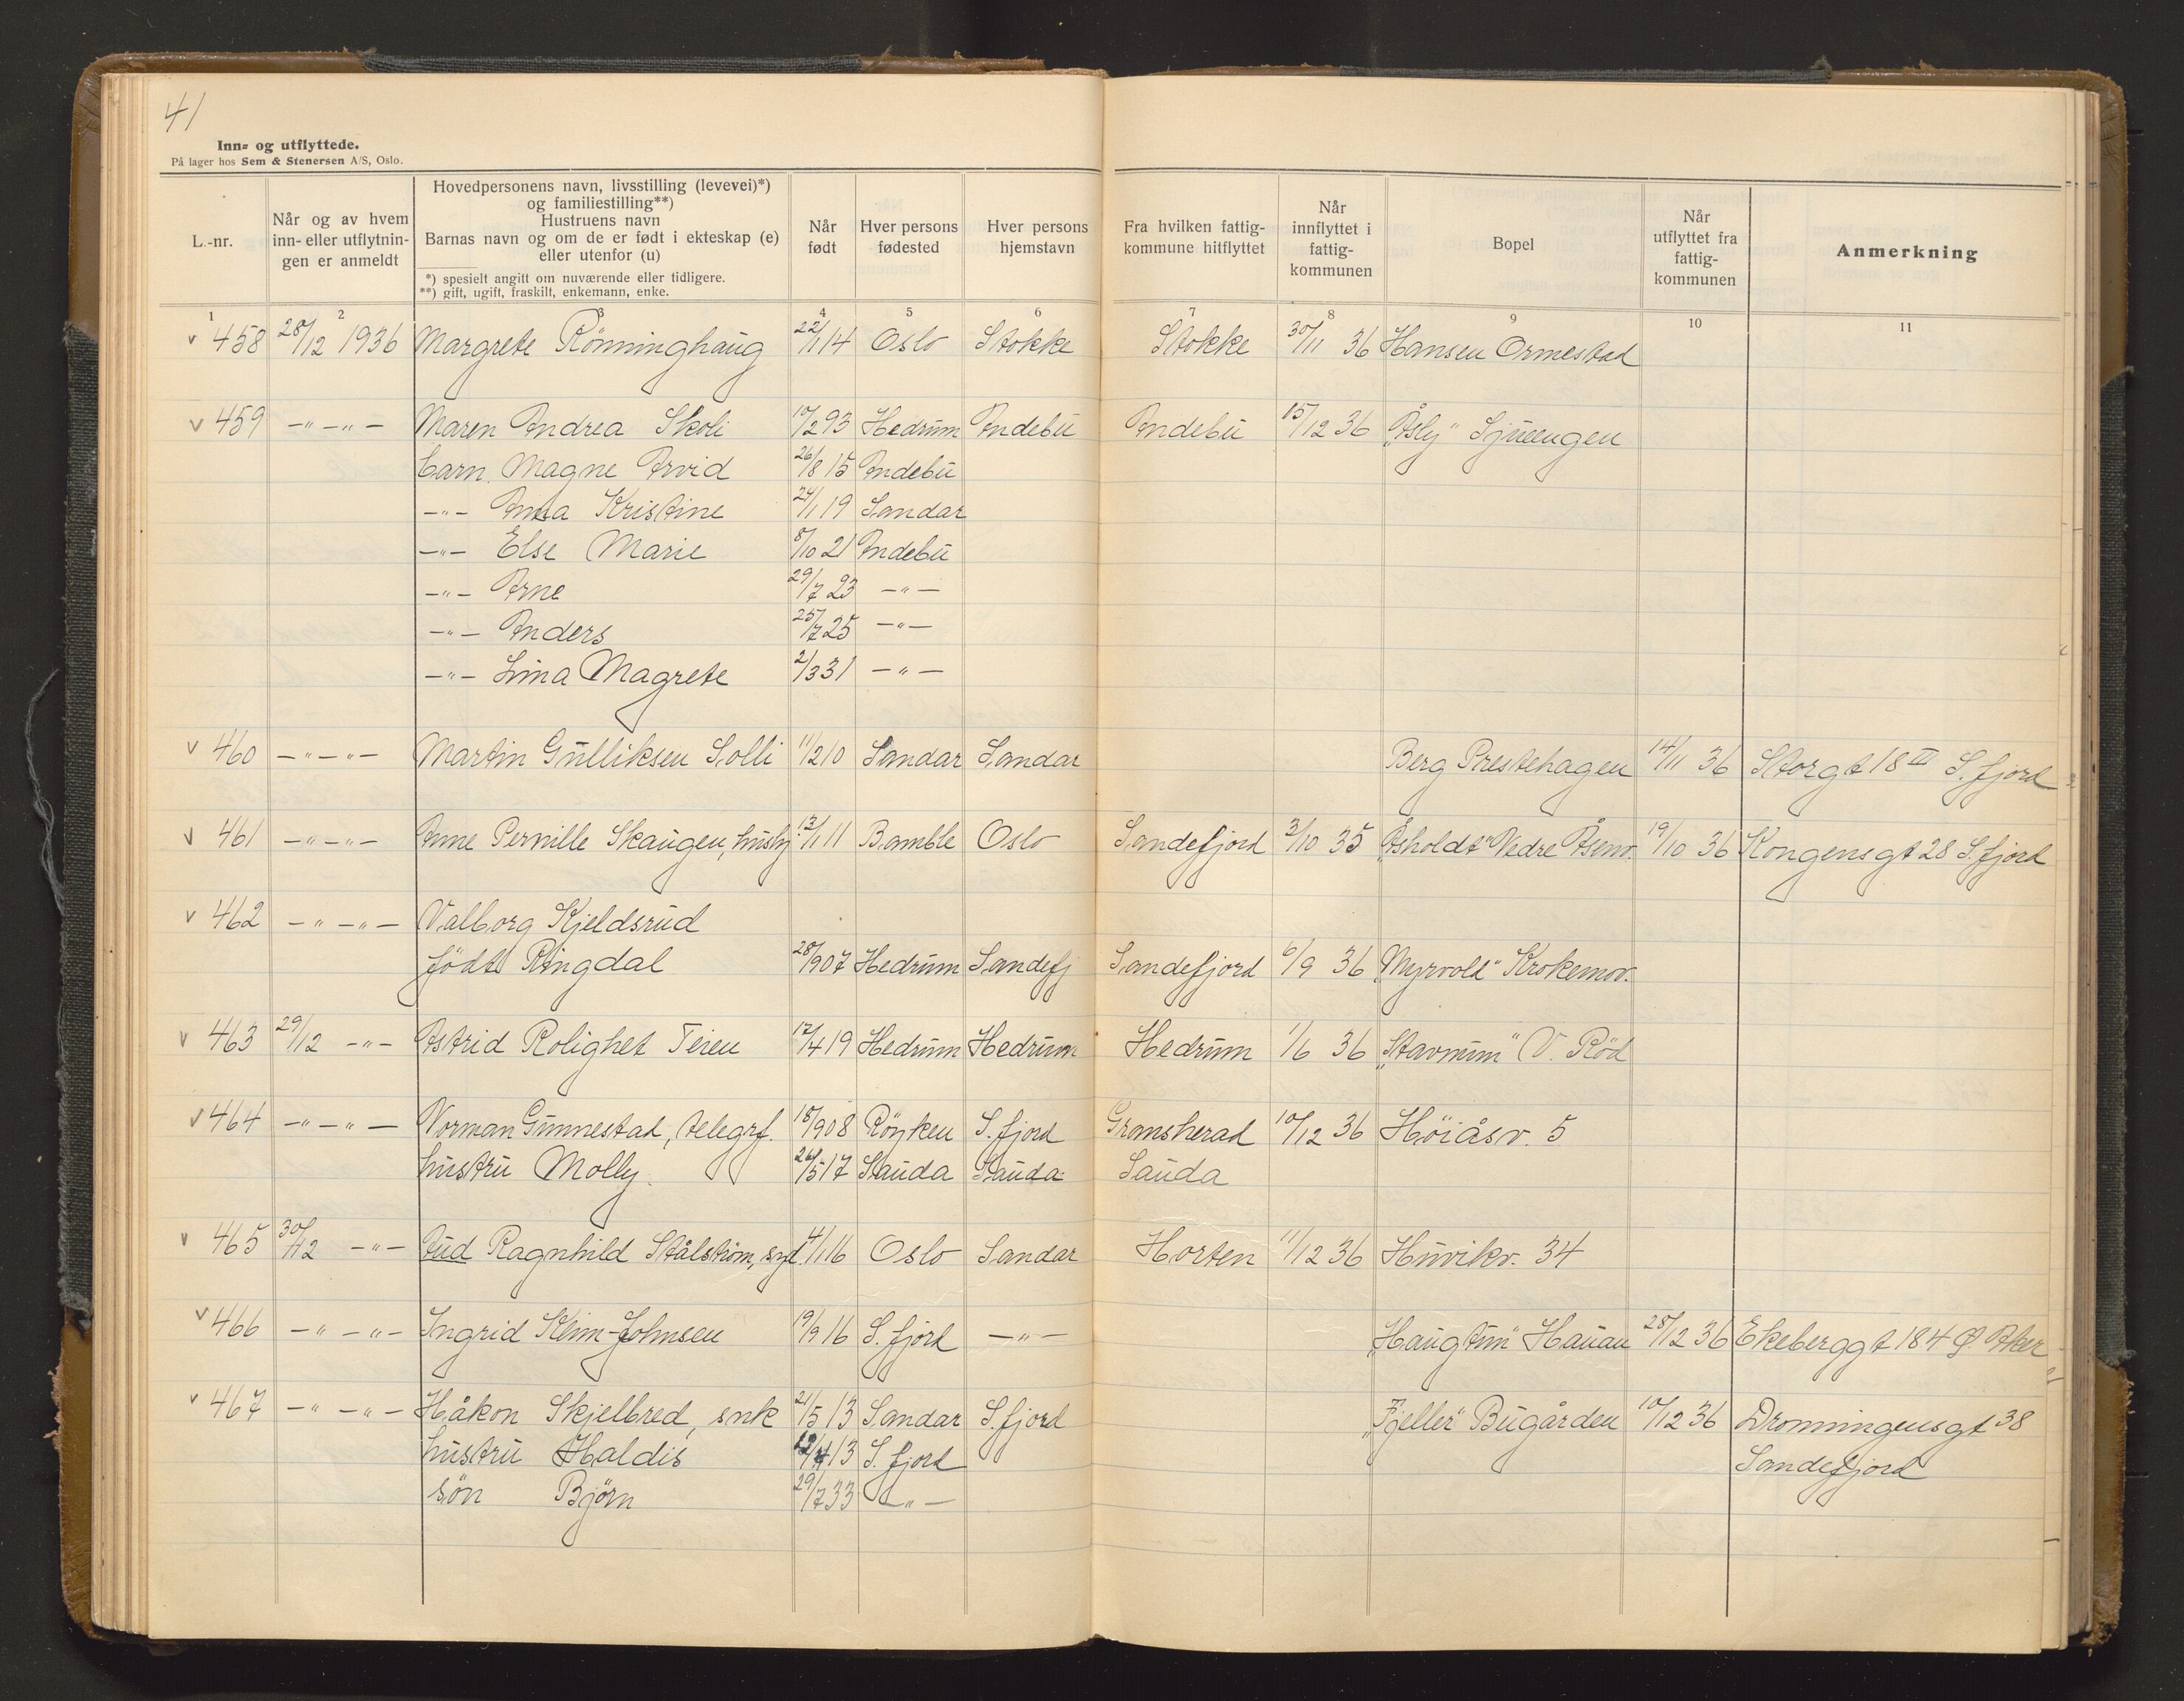 41
Inn- og utflyttede.
På lager hos Sem & Stenersen A/S, Oslo.
L.-nr.
Når og av hvem inn- eller utflytnin-gen er anmeldt
Hovedpersonens navn, livsstilling (levevei)*)
og familiestilling**)
Hustruens navn
Barnas navn og om de er født i ekteskap (e)
eller utenfor (u)
*) spesielt angitt om nuværende eller tidligere.
**) gift, ugift, fraskilt, enkemann, enke.
Når født
Hver persons fødested
Hver persons hjemstavn
Fra hvilken fattig-kommune hitflyttet
Når innflyttet i fattig-kommunen
Bopel
Når utflyttet fra fattig-kommunen
Anmerkning
1 2 3 4 5 6 7 8 9 10 11
v 458 28/12 1936 Margrete Rönninghaug 22/1 14 Oslo Stokke Stokke 30/11 36 Hansen Ormestad
v 459 -"-"- Maren Andrea Skoli 10/2 93 Hedrum Andebu Andebu 15/12 36 "Åsly" Sjuengen
barn Magne Arvid 26/8 15 Andebu
-"- Anna Kristine 24/1 19 Sandar
-"- Else Marie 8/10 21 Andebu
-"- Arne 29/7 23 -"-
-"- Anders 25/7 25 -"-
-"- Lina Magrete 2/3 31 -"-
v 460 -"-"- Martin Gulliksen Solli 11/2 10 Sandar Sandar Berg Prestehagen 14/11 36 Storgt 18 III S.fjord
v 461 -"-"- Anne Pernille Skaugen, hushj. 13/1 11 Bamble Oslo Sandefjord 3/10 35 "Åsholdt" Nedre Åsenv. 19/10 36 Kongensgt 28 S.fjord
v 462 -"-"- Valborg Kjeldsrud
født Ringdal 28/9 07 Hedrum Sandefj Sandefjord 6/9 36 "Myrvold" Krokemov.
v 463 29/12 -"- Astrid Rolighet Teien 17/4 19 Hedrum Hedrum Hedrum 1/6 36 "Stavnum" V. Röd
v 464 -"-"- Norman Gunnestad, telegrf. 18/9 08 Röyken S.fjord Gransherad 10/12 36 Höiåsv. 5
hustru Molly. 26/5 17 Sauda Sauda Sauda
v 465 30/12 -"- Aud Ragnhild Stålström, syd. 4/1 16 Oslo Sandar Horten 11/12 36 Huvikv. 34
v 466 -"-"- Ingrid Klim-Johnsen 19/9 16 S.fjord -"- "Haugtun" Hauan 28/12 36 Ekeberggt 184 Ø. Aker
v 467 -"-"- Håkon Skjelbred, snk 21/5 13 Sandar S.fjord "Fjeller" Bugården 10/12 36 Dronningensgt 38
hustru Haldis 13 S.fjord Sandefjord
sön Björn 29/7 33 -"-